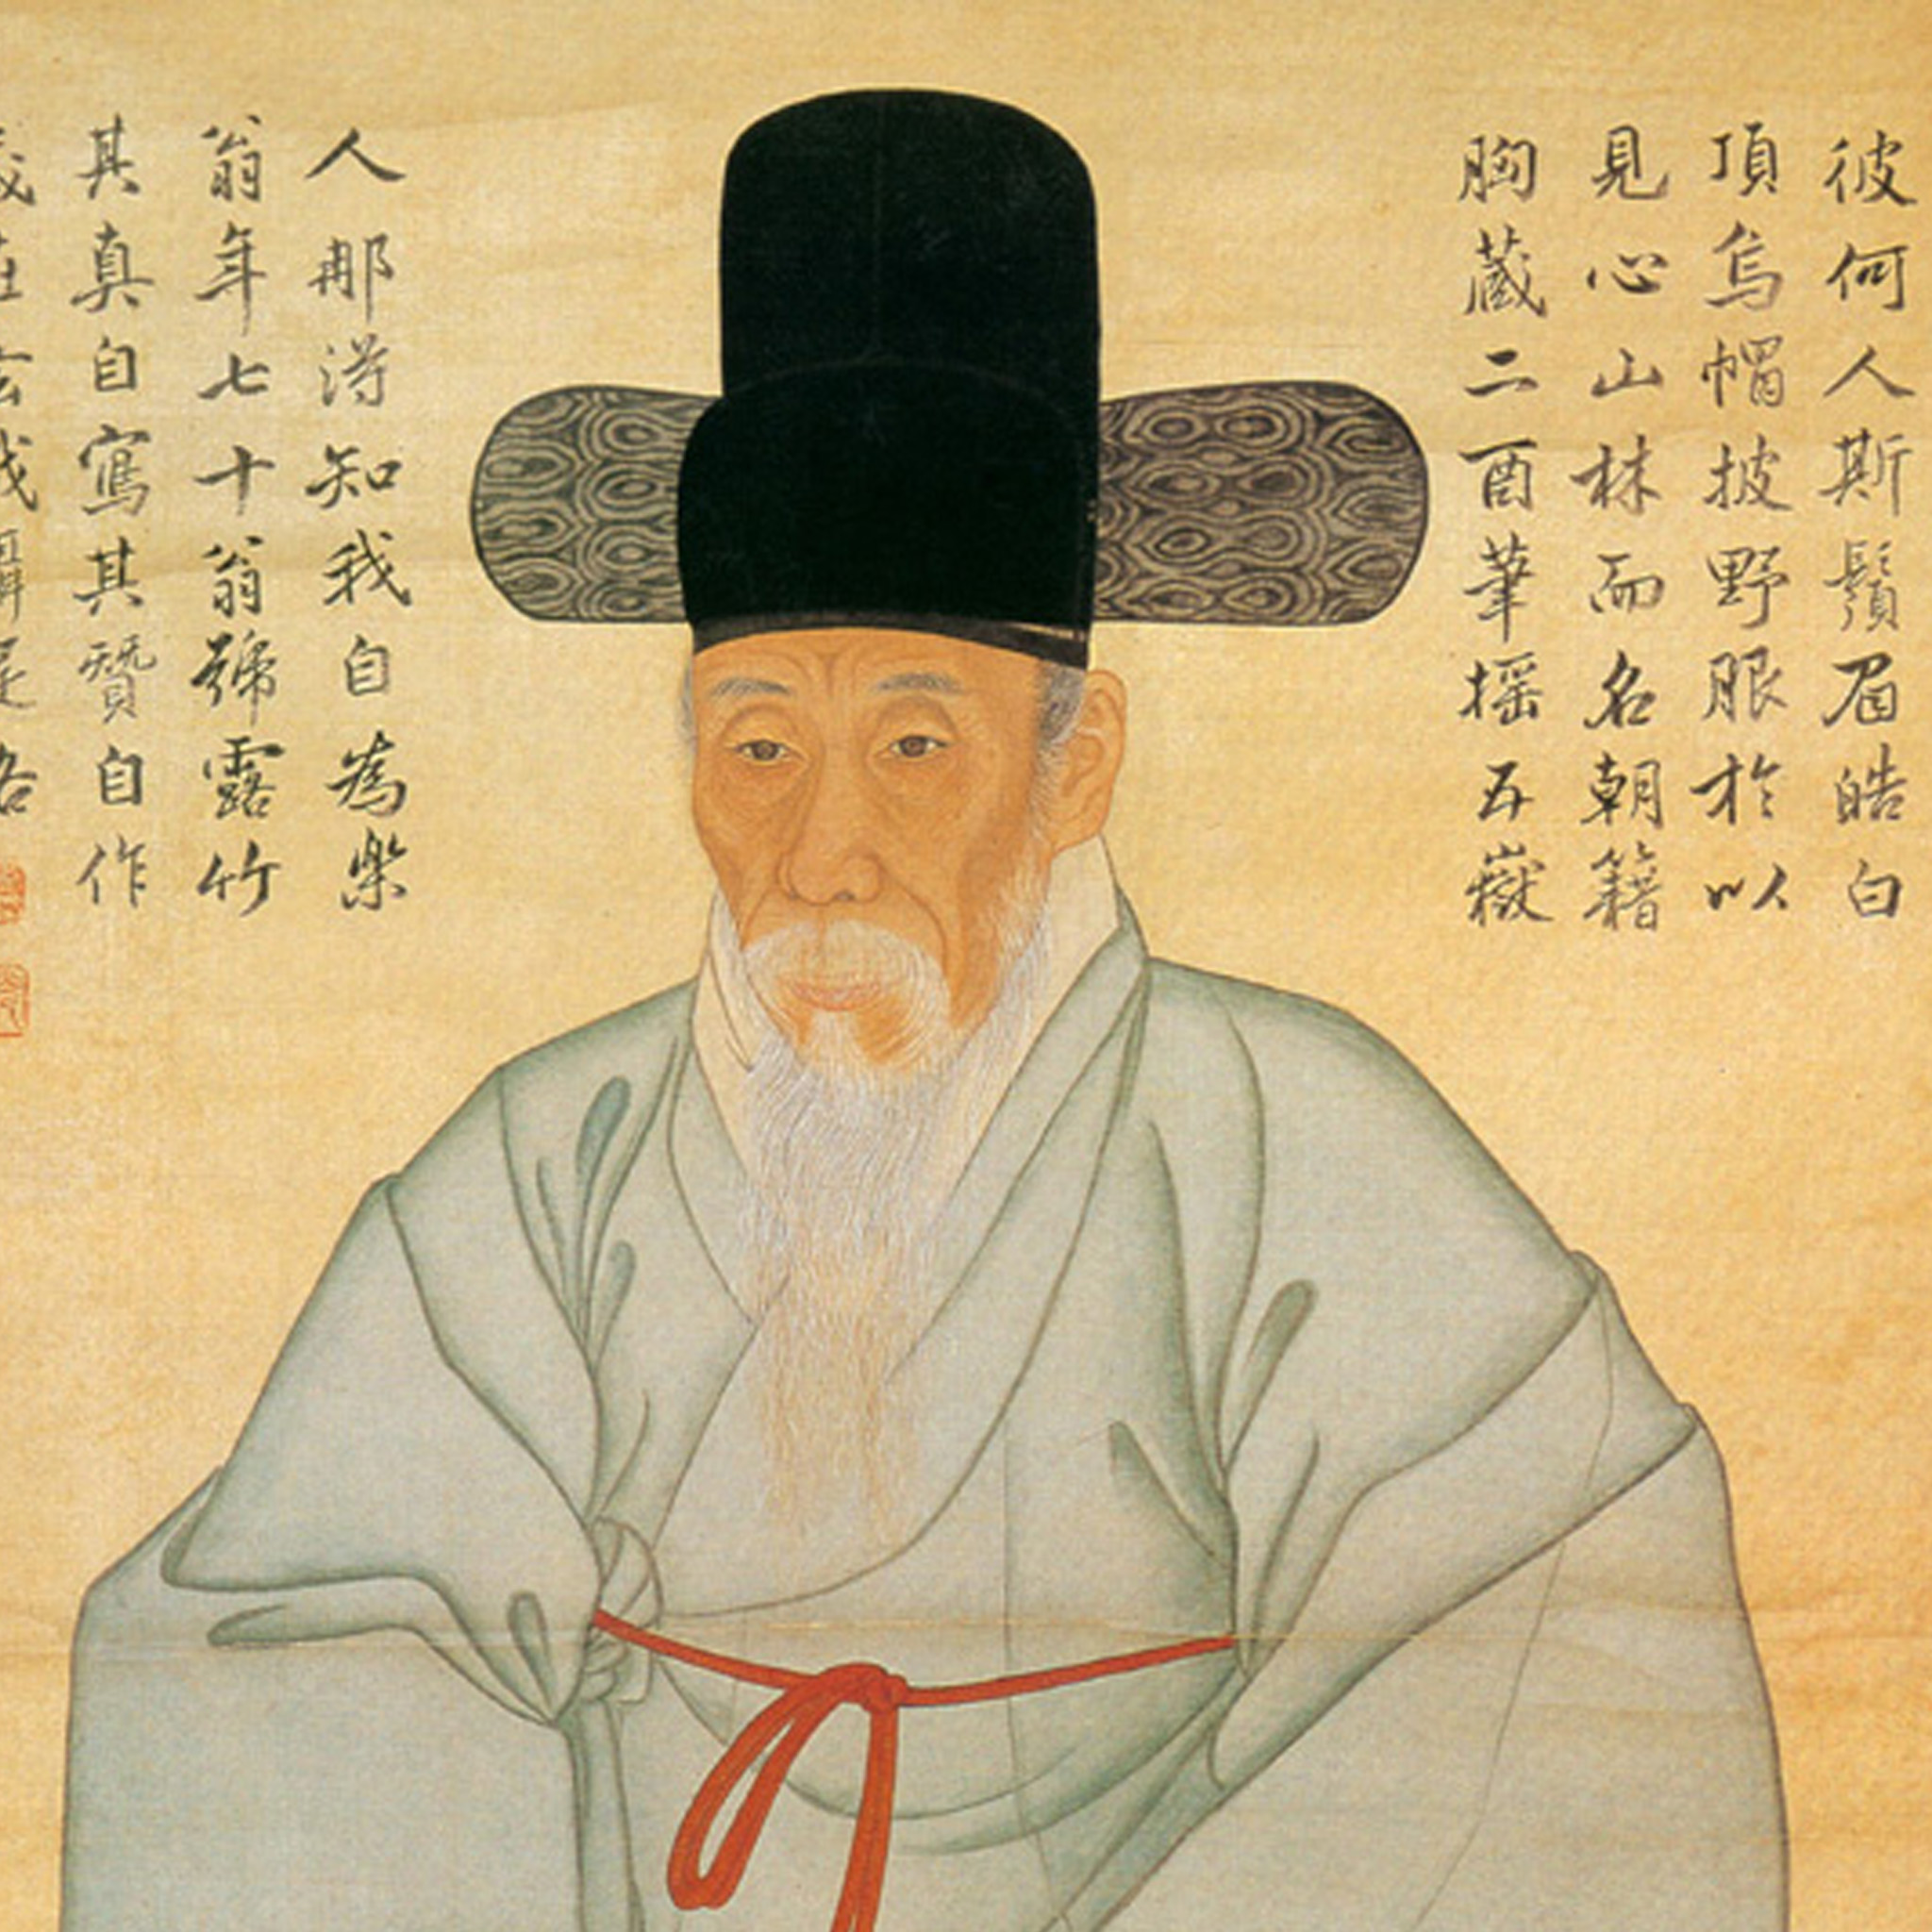 彼何人斯鬚眉皓白
頂烏帽披野服於以
見心山林而名朝籍
胸藏二酉筆搖五嶽
人那得知我自為樂
翁年七十翁號露竹
其真自寫其贊自作